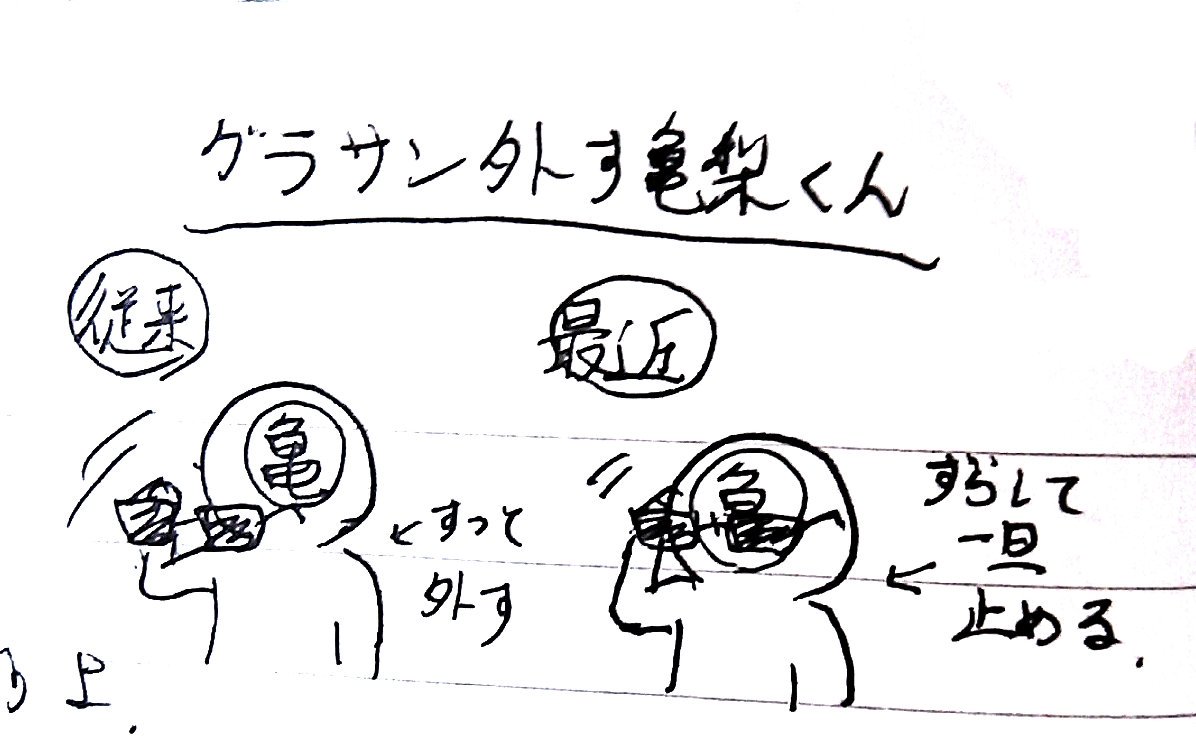 グラサン外す亀梨くん
従来
最近
亀
亀
←すっと
外す
ずらして
一旦
止める.